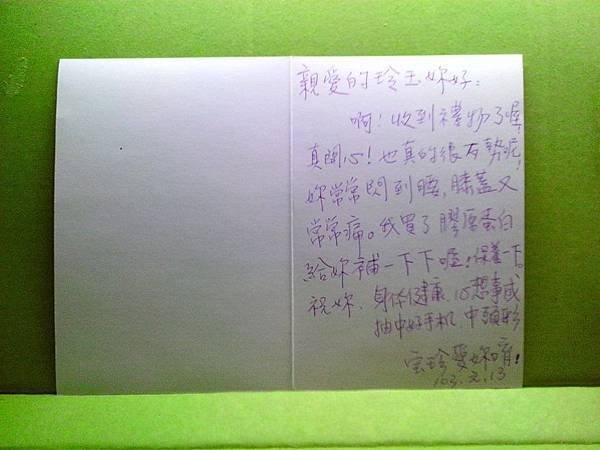 親愛的玲玉妳好:
啊!收到禮物了喔!
真開心!也真的很有勢呢!
妳常常閃到腰,膝蓋又
常常痛。我買了膠原蛋白
給妳補一下下喔!保養一下。
祝妳.身体健康.心想事成
抽中好手机.中頭彩
宝玲愛妳唷!
103.2.13